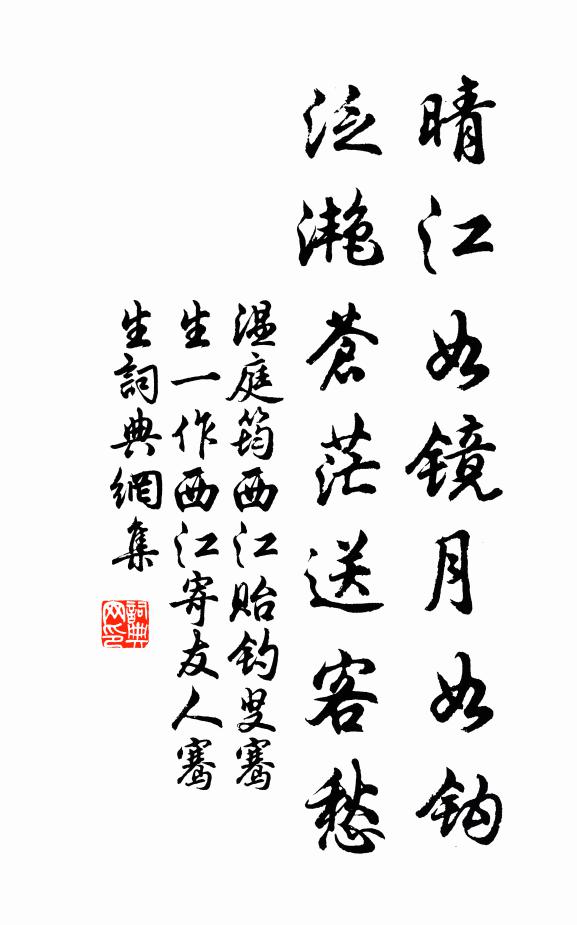 晴江如镜月如钩
泛灔苍茫送客愁
温庭筠西江贻钓叟骞
生一作西江寄友人骞
生詞典網集
詞典网印